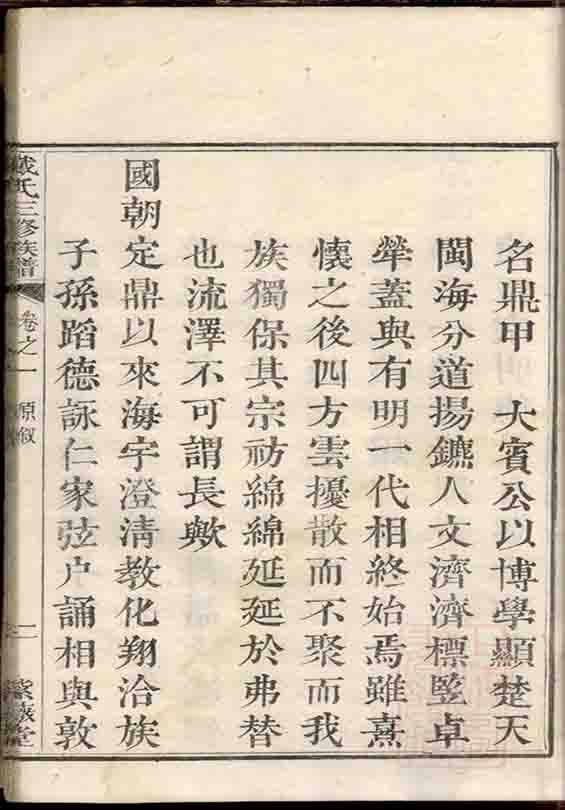 名鼎甲　大賓公以博學顯楚天
閩海分道揚鑣人文濟濟標竪卓
犖蓋與有明一代相終始焉雖熹
懷之後四方雲擾散而不聚而我
族獨保其宗祊綿綿延延於弗替
也流澤不可謂長歟
國朝定鼎以來海宇澄清教化翔洽族
子孫蹈德詠仁家弦户誦相與敦
戴氏三修族譜　卷之一　原敘　二　紫薇堂